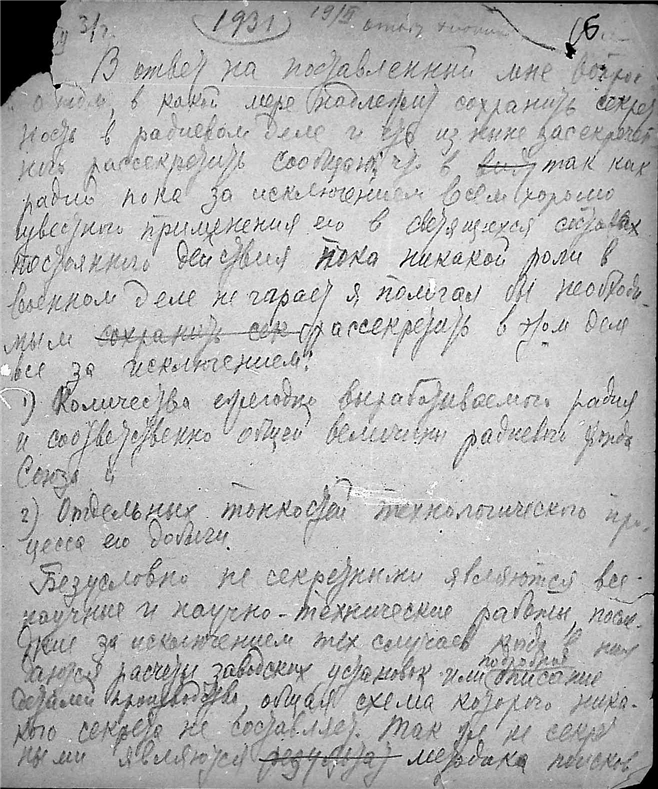 31г. 1931 19/II 6
В ответ на поставленный мне вопрос
о том, в какой мере надлежит сохранить секрет
ность в радиевом деле и что из ныне засекречен
ного рассекретить сообщаю, что в виду так как
радий пока за исключением всем хорошо
известного применения его в светящихся составах
постоянного действия пока никакой роли в
военном деле не играет я полагал бы необходи-
мым сохранить сек рассекретить в этом деле
все за исключением:
1) Количества ежегодно вырабатываемого радия
и соответственно общей величины радиевого фонда
Союза и
2) Отдельных тонкостей технологического про-
цесса его добычи.
Безусловно не секретными являются все
научные и научно-технические работы, после
дние за исключением тех случаев когда в них
даются расчеты заводских установок или подробное описание
деталей производства, общая схема которого ника-
кого секрета не составляет. Так же не секрет
ными являются результат методика поисков